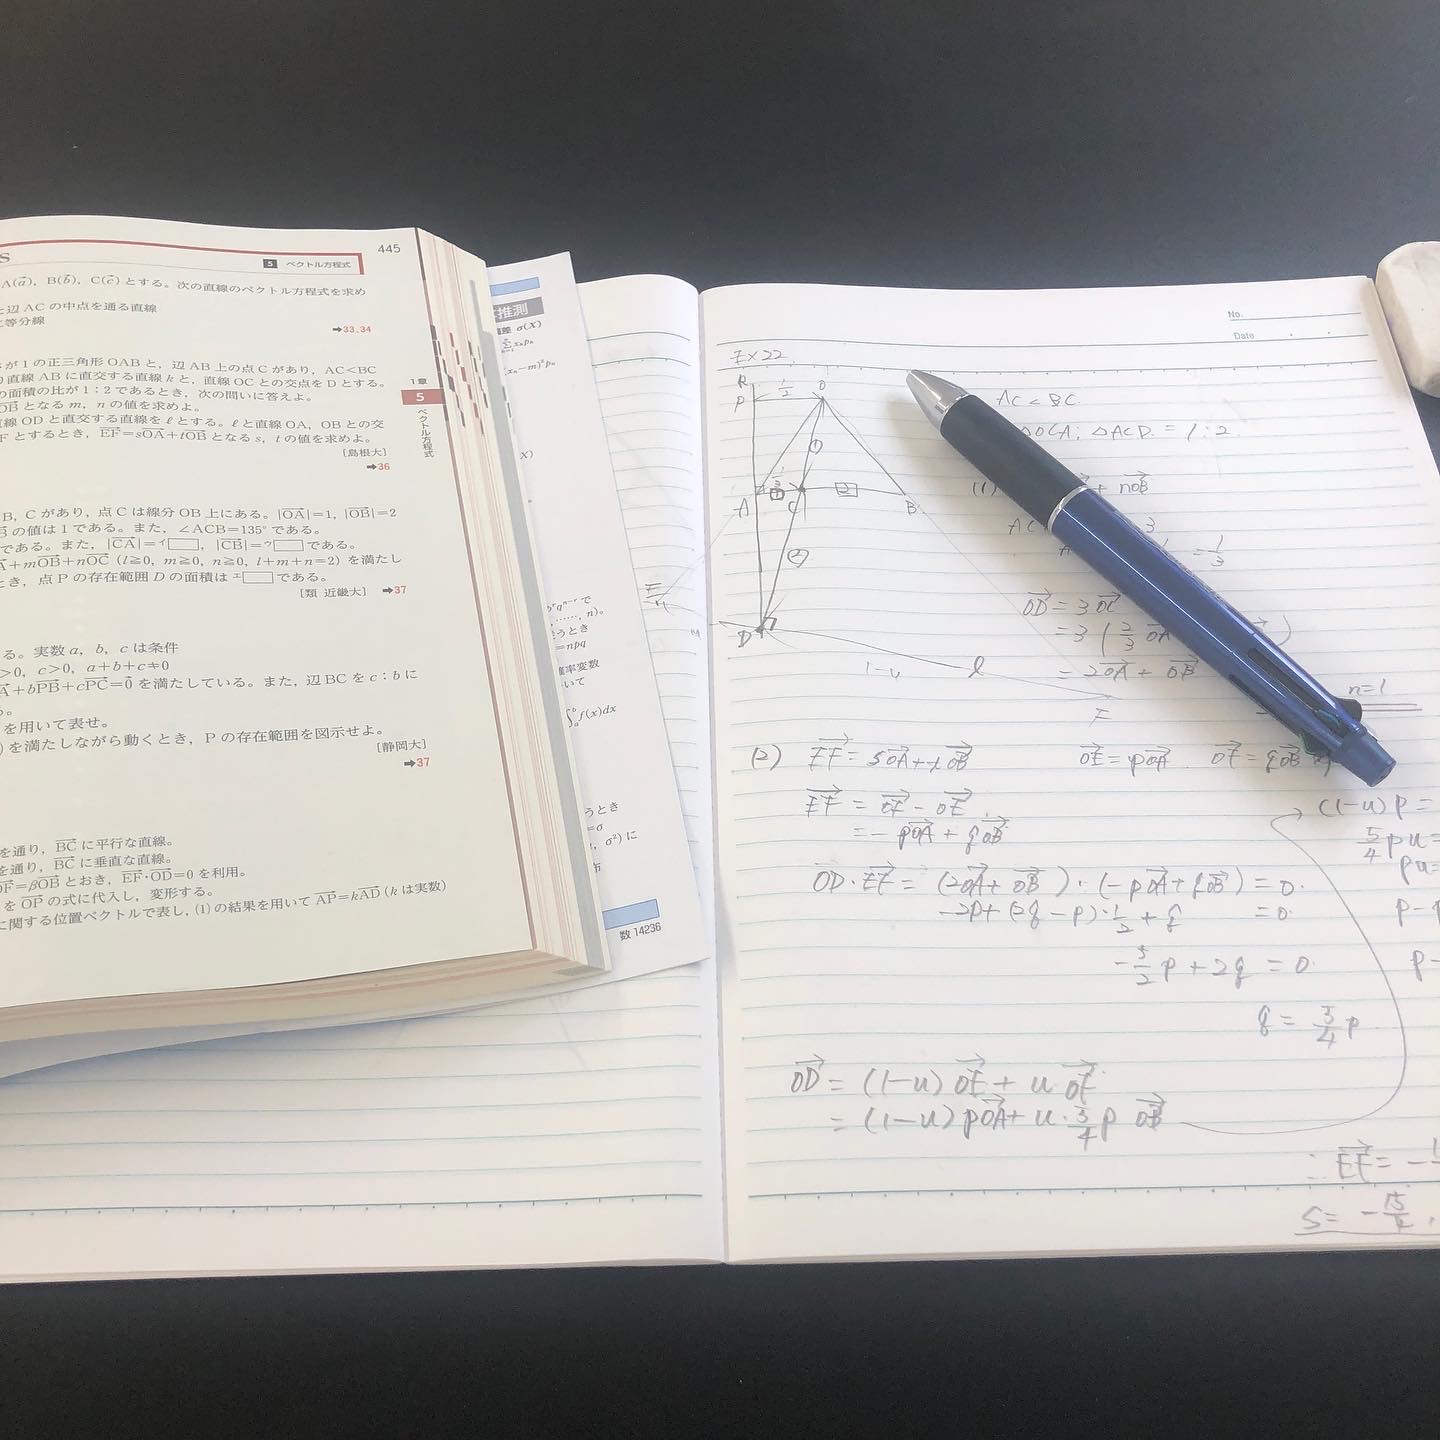 S
5 ベクトル方程式
445
A(a⃗), B(b⃗), C(c⃗) とする。次の直線のベクトル方程式を求め
辺 AC の中点を通る直線
二等分線
➡33,34
が1の正三角形 OAB と，辺 AB 上の点 C があり，AC<BC
直線 AB に直交する直線 k と，直線 OC との交点を D とする。
の面積の比が 1：2 であるとき，次の問いに答えよ。
OB⃗ となる m, n の値を求めよ。
線 OD と直交する直線を ℓ とする。ℓ と直線 OA，OB との交
F とするとき，EF⃗=sOA⃗+tOB⃗ となる s, t の値を求めよ。
[島根大]
➡36
B, C があり，点 C は線分 OB 上にある。|OA⃗|=1, |OB⃗|=2
の値は 1 である。また，∠ACB=135° である。
である。また，|CA⃗|=イ□, |CB⃗|=ウ□ である。
+mOB⃗+nOC⃗ (l≧0, m≧0, n≧0, l+m+n=2) を満たし
とき，点 P の存在範囲 D の面積は エ□ である。
[類 近畿大] ➡37
る。実数 a, b, c は条件
>0, c>0, a+b+c≠0
+bPB⃗+cPC⃗=0⃗ を満たしている。また，辺 BC を c：b に
る。
を用いて表せ。
を満たしながら動くとき，P の存在範囲を図示せよ。
[静岡大]
➡37
を通り，BC⃗ に平行な直線。
を通り，BC⃗ に垂直な直線。
OF⃗=βOB⃗ とおき，EF⃗・OD⃗=0 を利用。
を OP⃗ の式に代入し，変形する。
に関する位置ベクトルで表し，(1) の結果を用いて AP⃗=kAD⃗ (k は実数)
1章
5
ベクトル方程式
推測
差 σ(X)
で
うとき
=npq
確率変数
いて
f(x)dx
うとき
=σ
, σ²) に
数 14236
No.
Date
EX22.
AC<BC.
△OCA：△ACD = 1：2
(1)
+ nOB⃗
OD⃗ = 3OC⃗
= 3(2/3 OA⃗
= 2OA⃗ + OB⃗
n=1
O
A
C
B
D
1-u
ℓ
E
F
(2) EF⃗ = sOA⃗+tOB⃗ OE⃗=pOA⃗. OF⃗=qOB⃗
EF⃗ = OF⃗ - OE⃗.
= -pOA⃗ + qOB⃗
OD⃗・EF⃗ = (2OA⃗+OB⃗)・(-pOA⃗+qOB⃗) = 0.
-2p+(2q-p)・1/2+q = 0.
-5/2 p + 2q = 0.
q = 5/4 p
OD⃗ = (1-u)OE⃗ + uOF⃗
= (1-u)pOA⃗ + u・5/4 p OB⃗
(1-u)p =
5/4 pu =
pu =
p-
p-
∴ EF⃗ = -
s= -15/4,